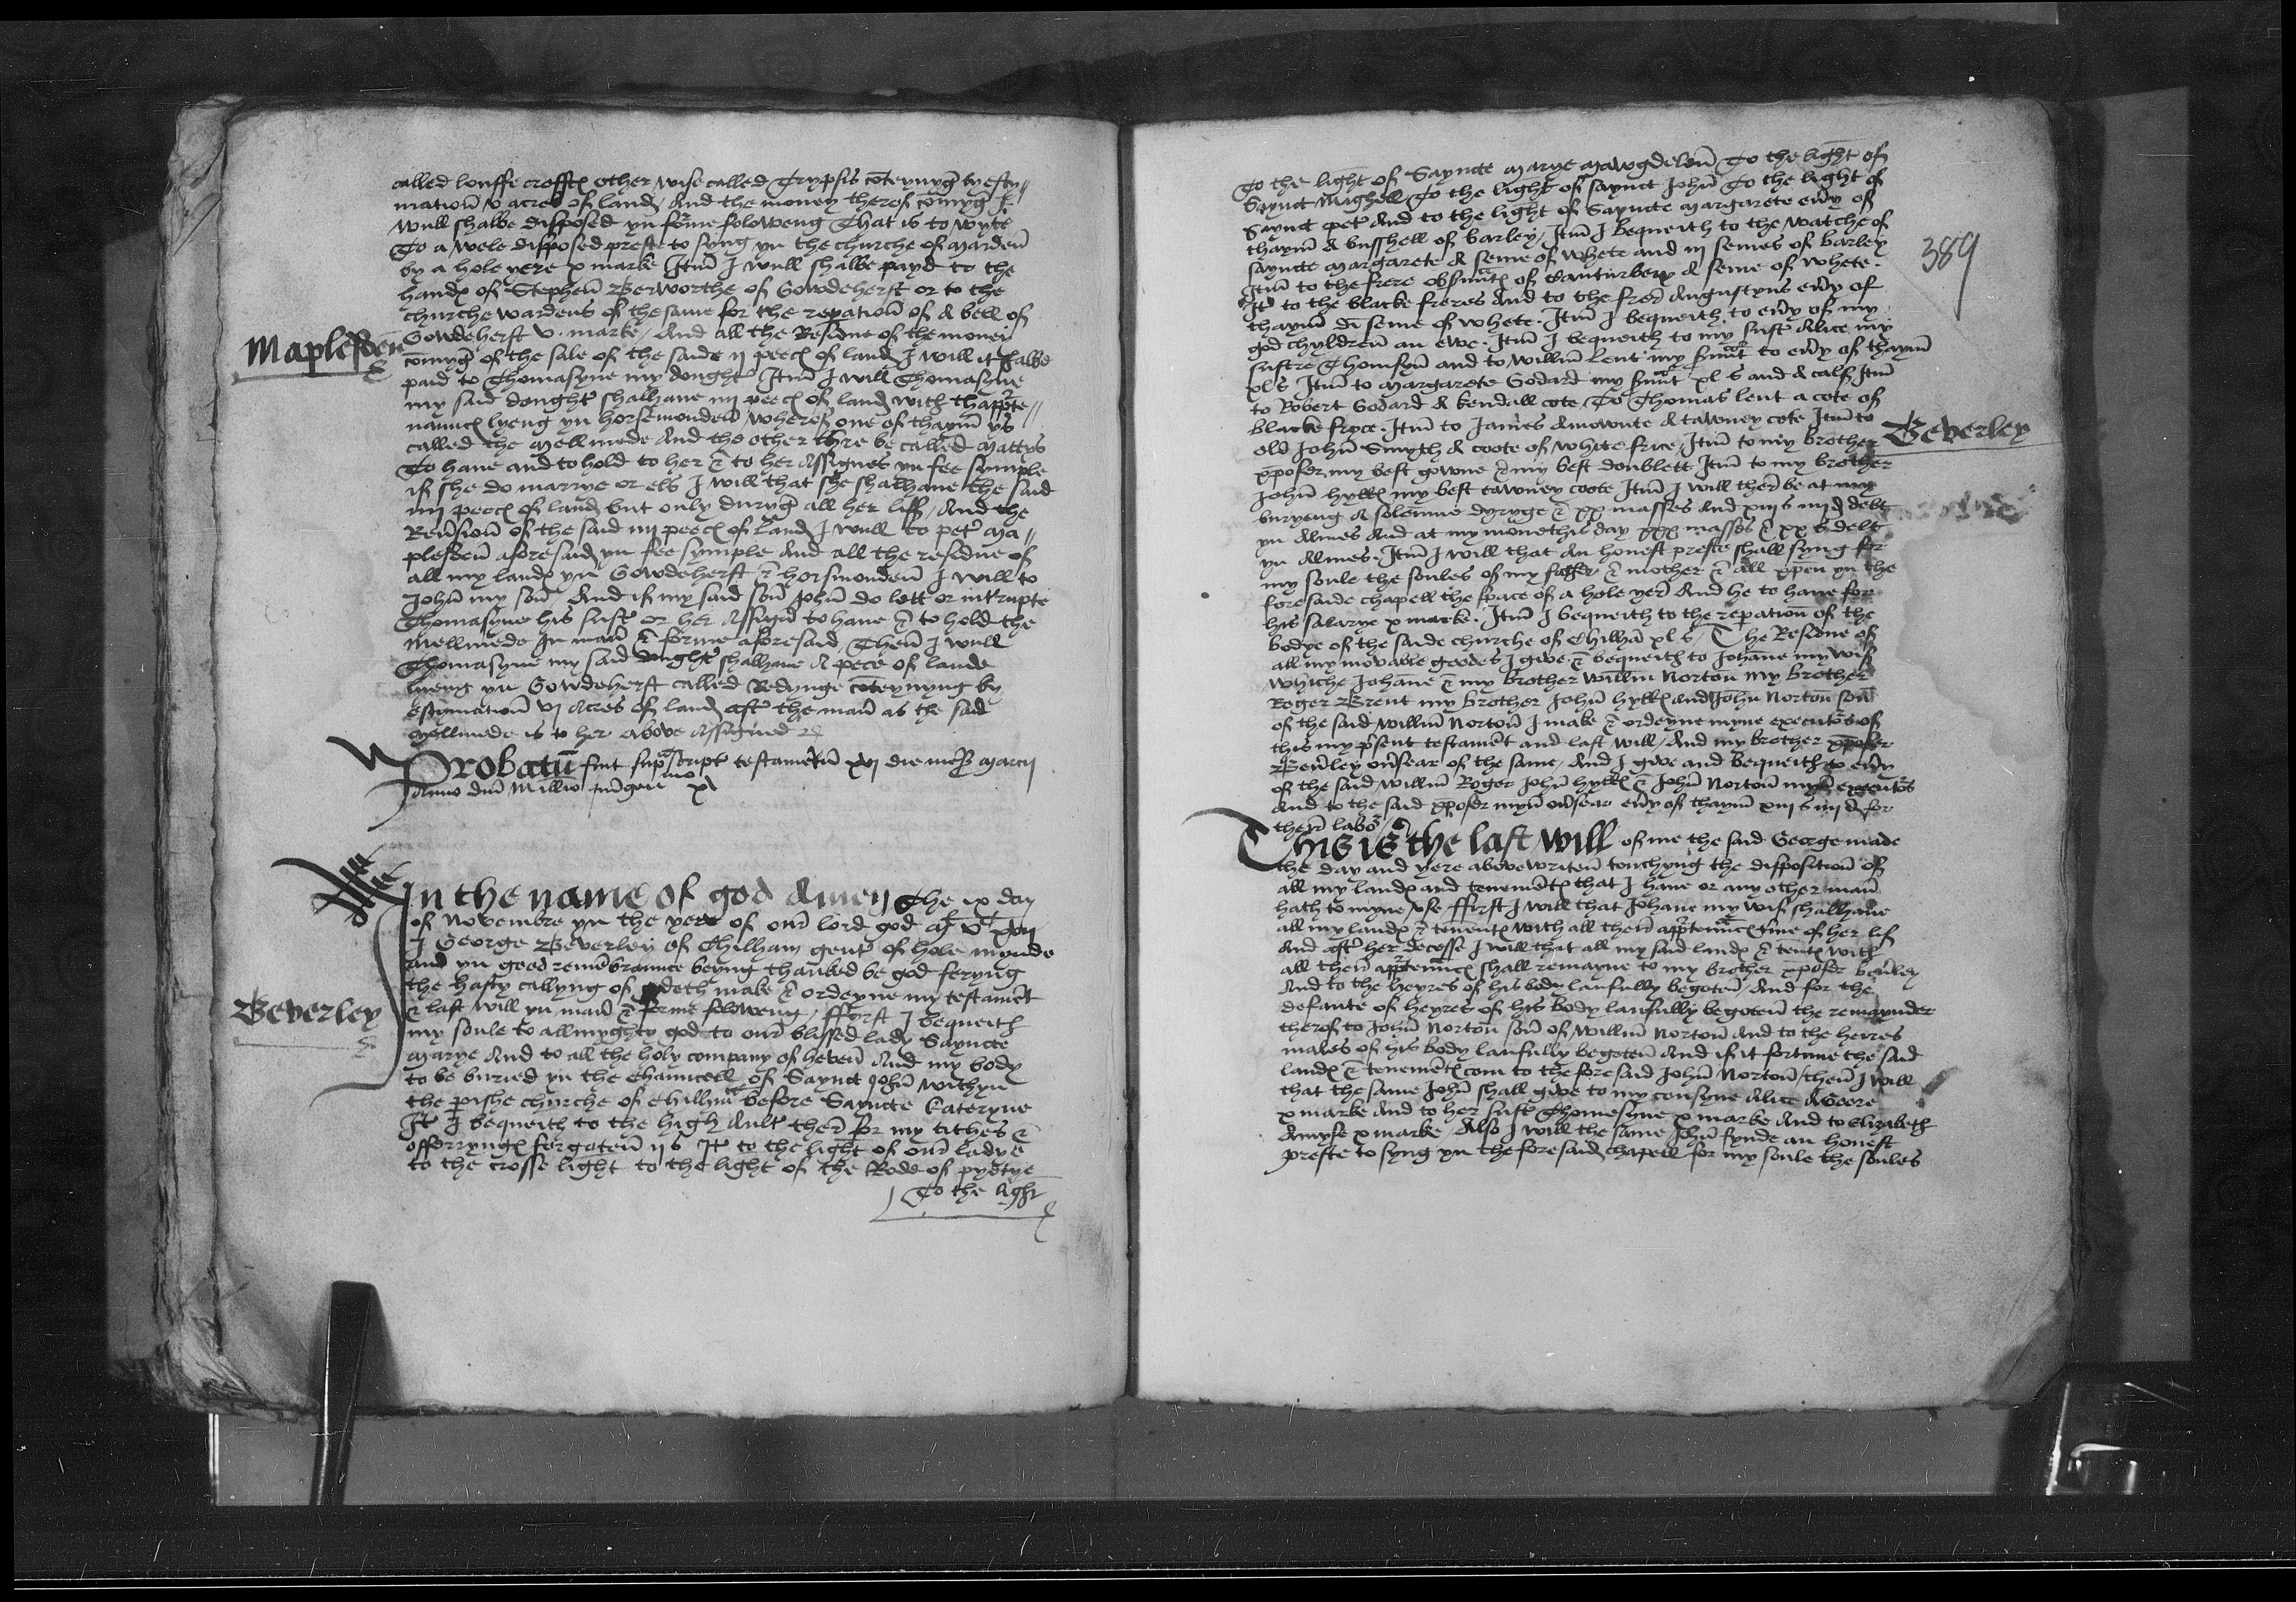 called louffe crofftes other wise called Trypsis coteynyg by esty
mation v acres of land And the money therof comyg I
wull shalbe disposed yn forme foloweng That is to wyte
To a wele disposed preste to syng yn the churche of marden
by a hole yere x marke Itm I wull shalbe payd to the
handes of Stephen Berworthe of Gowdeherst or to the
churche wardens of the same for the repation of A bell of
Gowdeherst v. marke / And all the Residue of the money
Maplesden
comyg of the sale of the saide ij peces of land I will it shalbe
paid to Thomasyne my doughter Itm I will Thomasyne
my said doughter shalhaue iiij peces of land with thapprte
naunces lyeng yn horsmonden wherof one of thaym ys
called the Mellmede And the other thre be called Mattys
To haue and to hold to her & to her Assignes yn fee symple
if she do marrye or els I will that she shalhaue the said
iiij peces of land but only duryg all her liff / And the
Reusion of the said iiij peces of land I wull to peter Ma
plesden aforesaid yn fee symple And all the residue of
all my landes yn Gowdeherst & horsmonden I will to
John my son And if my said son John do lett or intrupte
Thomasyne his suster or her Assigns to haue & to hold the
Mellmede In man & forme aforesaid Then I wull
Thomasyne my said doughter shalhaue A pece of lande
lyeng yn Gowdeherst called Redynge coteynyng by
estymation vj Acres of land after the man as the said
Mellmede is to her above Assigned
Probatu fuit suprascript testamentu xvj die mens marcij
Anno dni Millio quigen xj mo
In the name of god Amen The ix day
of Novembre yn the yere of our lord god
I George Beverley of Chilham gent of hole mynde
and yn good remembraunce beyng thanked be god feryng
the hasty callyng of deth make & ordeyne my testament
Beverley
& last will yn man & forme foloweng / ffyrst I bequeith
my soule to allmyghty god to our blissed lady Sayncte
Marye And to all the holy company of heven And my body
to be buried yn the Chauncell of Saynct John withyn
the pishe chyrche of Chillha before Sayncte Kateryne
It I bequeith to the high Aulter ther for my tithes &
offerynges forgoten ij s It to the light of our ladye
to the crosse light to the light of the Rode of pydtye
To the light
To the light of Sayncte Marye Mawgdelen To the light of
Saynct Mighell To the light of saynct John To the light of
Saynct peter And to the light of Sayncte Margarete evy of
thaym A busshell of barley / Itm I bequeith to the watche of
389
sayncte Margarete A seme of whete and iij semes of barley
Itm to the frere obsuntes of Canturbery A seme of whete .
It to the blacke freres And to the frers Augustyns evy of
thaym di seme of whete . Itm I bequeith to evy of my
god chyldren an ewe . Itm I bequeith to my suster Alice my
sustre Thomsyn and to willm Lent my sunt to evy of thaym
xl s Itm to Margarete Godard my sunt xl s and A calf Itm
to Robert Godard A kendall cote To Thomas lent a cote of
blacke fryce . Itm to James Amownte A tawney cote Itm to
Beverley
old John Smyth A coote of whyte frice / Itm to my brother
xpofer my best gowne & my best doublett Itm to my brother
John hylles my best tawney coote Itm I will ther be at my
buryeng A solemne dyryge & xx masses And xiij s iiij d delt
yn Almes And at my monethis day xxx masses & xx s delt
yn Almes . Itm I will that An honest preste shall syng for
my soule the soules of my father & mother & all xpen yn the
foresaide chapell the space of a hole yere And he to haue for
his salarye x marke . Itm I bequeith to the repation of the
bodye of the saide churche of Chilha xl s / The Residue of
all my movable goodes I give & bequeith to Johane my wif
whiche Johane & my brother willm Norton my brother
Roger Brent my brother John hylles and John Norton son
of the said willm Norton I make & ordeyne myne executors of
this my psent testament and last will / And my brother xpofer
Beuley oursear of the same / And I give and bequeith to evy
of the said willm Roger John hylles & John Norton myn executors
And to the said xpofer myn oursear evy of thaym xiij s iiij d for
ther labor
This is the last will of me the said George made
the day and yere above writen touchyng the disposition of
all my landes and tenementes that I haue or any other man
hath to myne use ffirst I will that Johane my wif shalhaue
all my landes & tenentes with all ther apprtennces time of her lif
And after her decesse I will that all my said landes & tentes with
all ther apprtennces shall remayne to my brother xpofer beuley
And to the heyres of his body laufully begoten And for the
defaute of heyres of his body laufully begoten the remaynder
therof to John Norton son of willm Norton And to the heires
males of his body laufully begoten And if it fortune the said
landes & tenementes com to the foresaid John Norton / then I will
that the same John shall give to my cousyne Alice Moore
x marke And to her suster Thomesyne x marke And to Elizabeth
Amyse x marke / Also I will the same John fynde an honest
preste to syng yn the foresaid chapell for my soule the soules